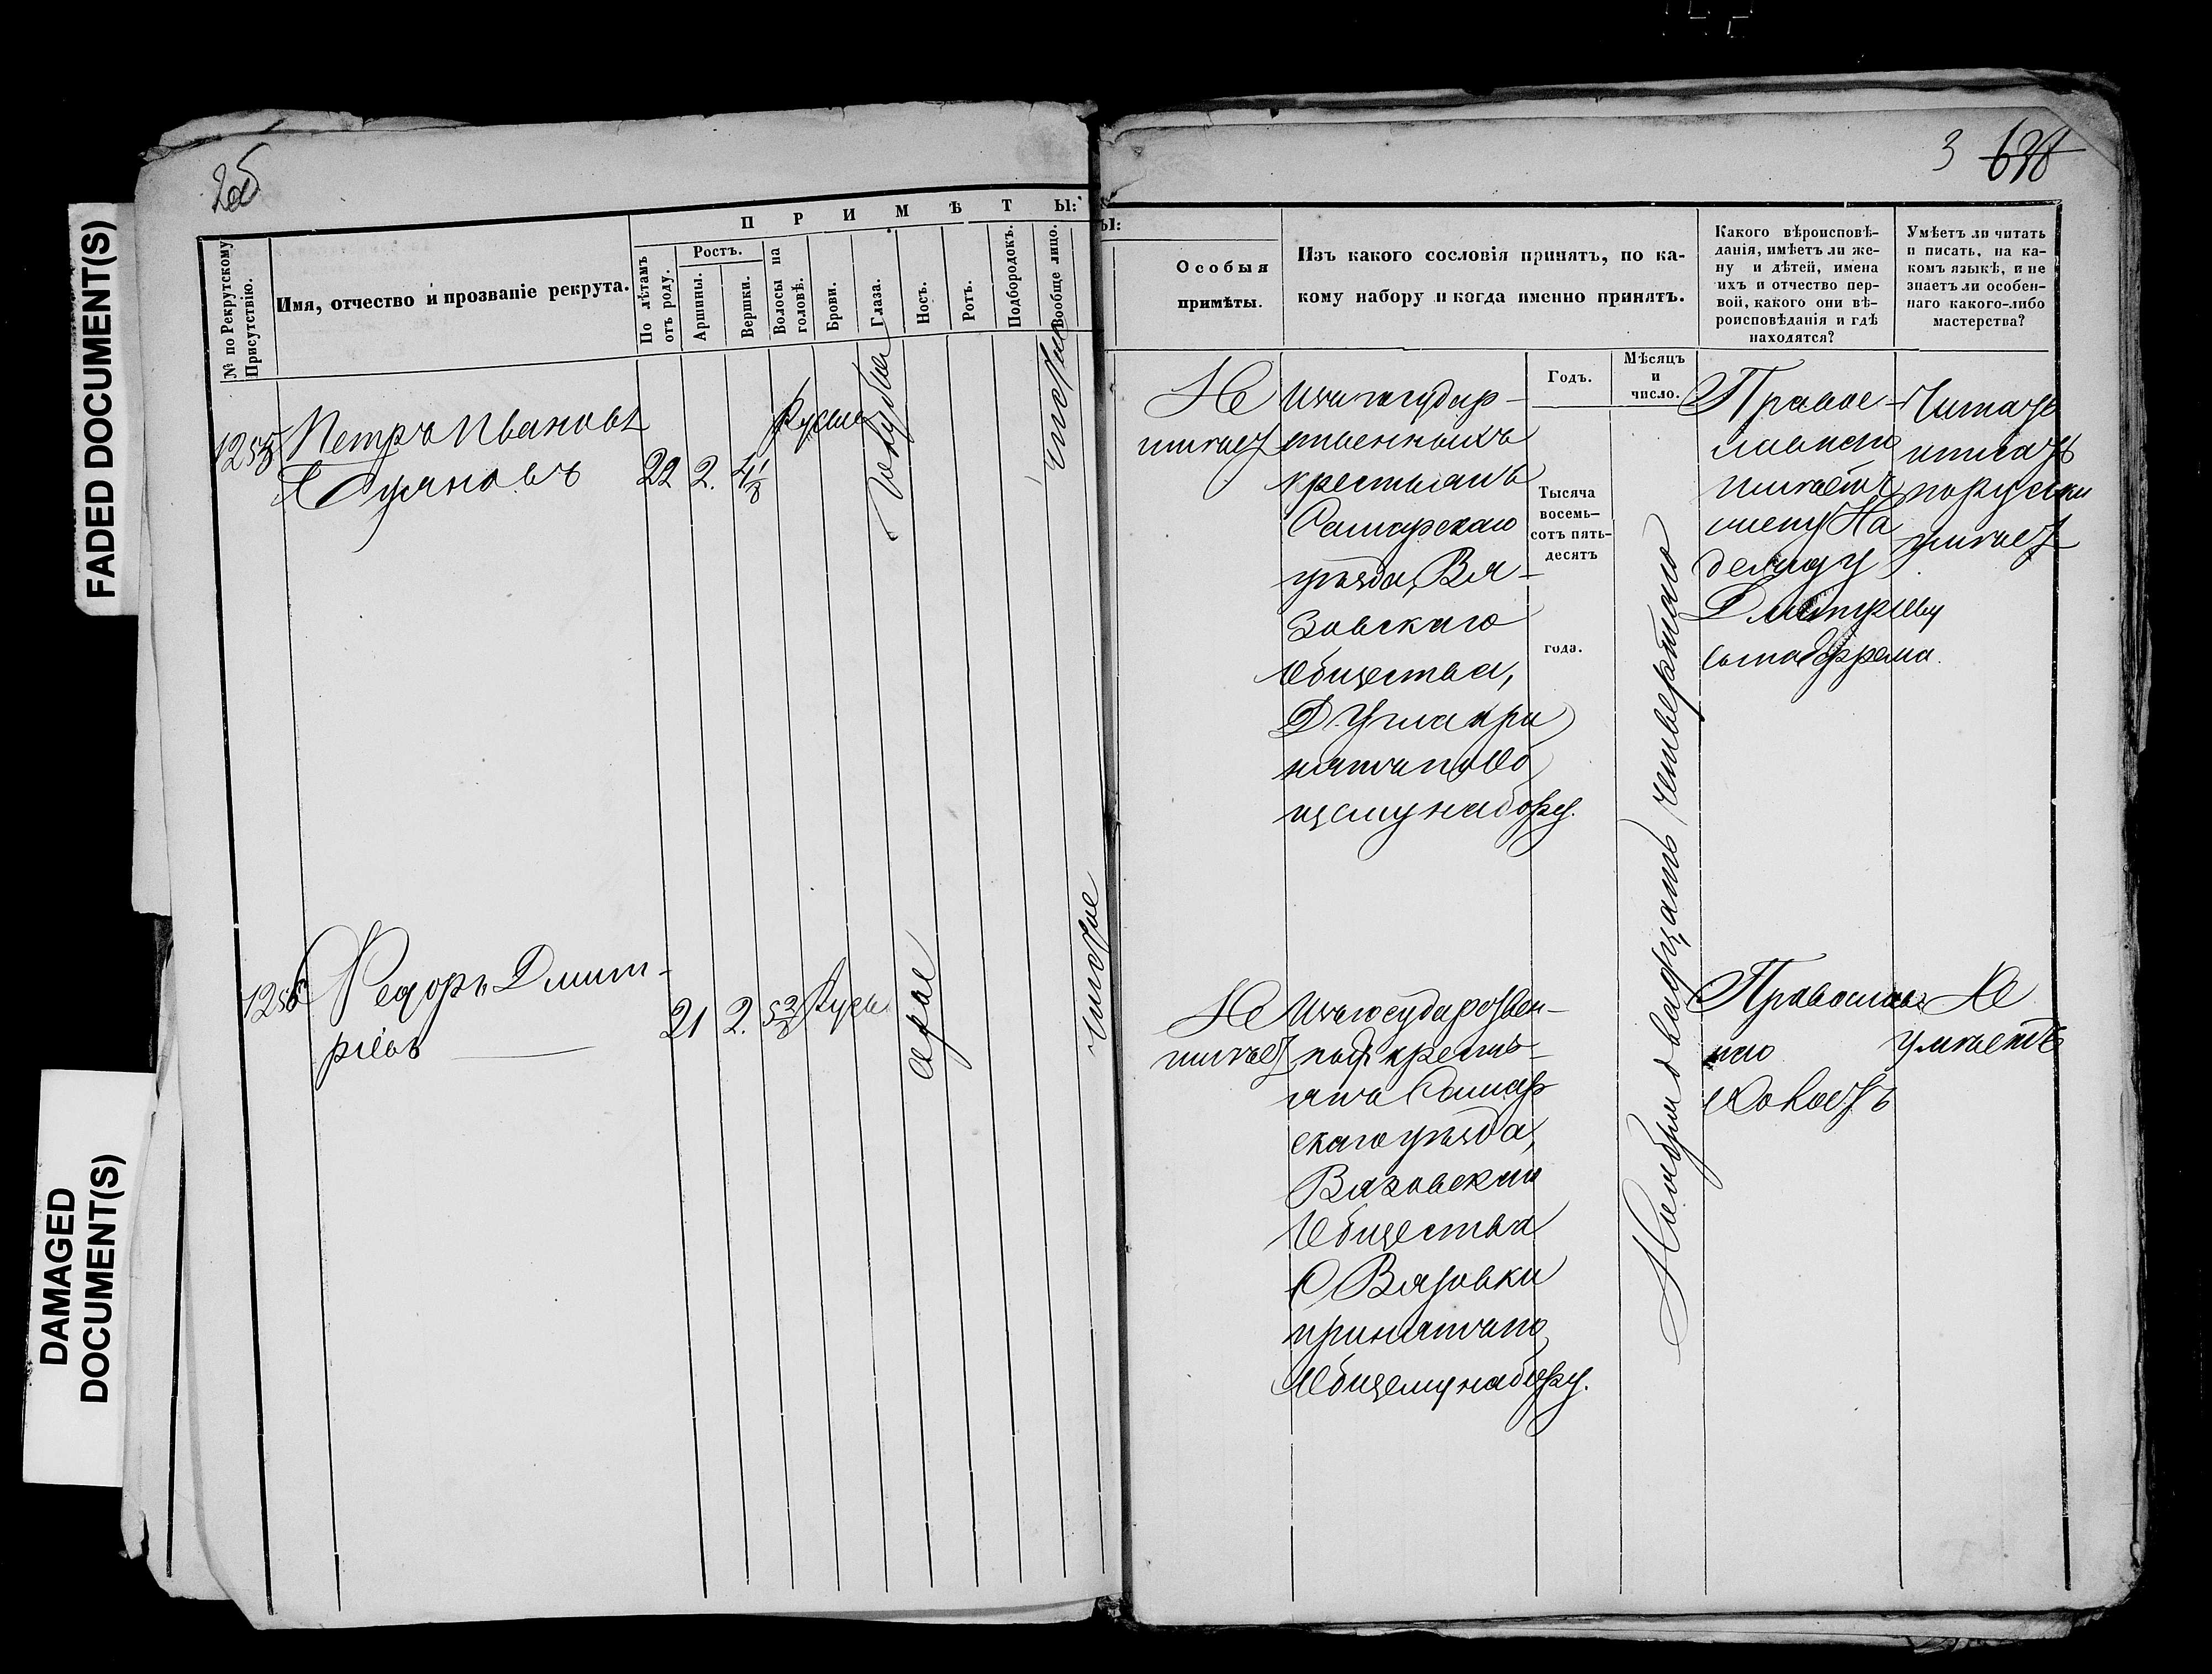 FADED DOCUMENT(S)
DAMAGED
DOCUMENT(S)
2об
П Р И М Ѣ Т Ы:
№ по Рекрутскому
Присутствію.
Имя, отчество и прозваніе рекрута.
По лѣтамъ
отъ роду.
Ростъ.
Аршины.
Вершки.
Волосы на
головѣ.
Брови.
Глаза.
Носъ.
Ротъ.
Подбородокъ.
Вообще лицо.
1255 Петръ Ивановъ
22 2. 4 1/8 Русые голубые чистое
1256 Федоръ Дмит-
ріевъ
21 2. Русы серые чистое
3 698
Ы:
Особыя
примѣты.
Изъ какого сословія принятъ, по ка-
кому набору и когда именно принятъ.
Годъ.
Мѣсяцъ
и
число.
Какого вѣроисповѣ-
данія, имѣетъ ли же-
ну и дѣтей, имена
ихъ и отчество пер-
вой, какого они вѣ-
роисповѣданія и гдѣ
находятся?
Умѣетъ ли читать
и писать, на ка-
комъ языкѣ, и не
знаетъ ли особен-
наго какого-либо
мастерства?
Не
имѣетъ
Изъ государ-
ственныхъ
крестьянъ
Самарскаго
уѣзда, Вя-
зовскаго
Общества,
принятъ по Об
щему набору.
Тысяча
восемь-
сотъ пять-
десятъ
года.
Ноября двадцать четвертаго
Правос-
лавнаго
имѣетъ
жену На
дежду
Дмитріеву
сына Ефрема.
Читать
и писать
по руски
умѣетъ
Не
имѣетъ
Изъ государствен-
ныхъ кресть-
янъ Самар
скаго уѣзда,
Вязовскаго
Общества
С Вязовки
принятъ по
Общему набору.
Православ-
наго
Холостъ
Не
умѣетъ